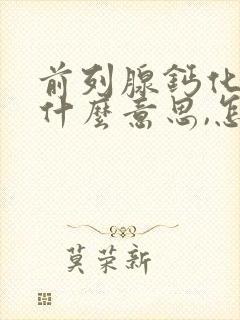 前列腺鈣化
什麼意思,怎
莫荣新